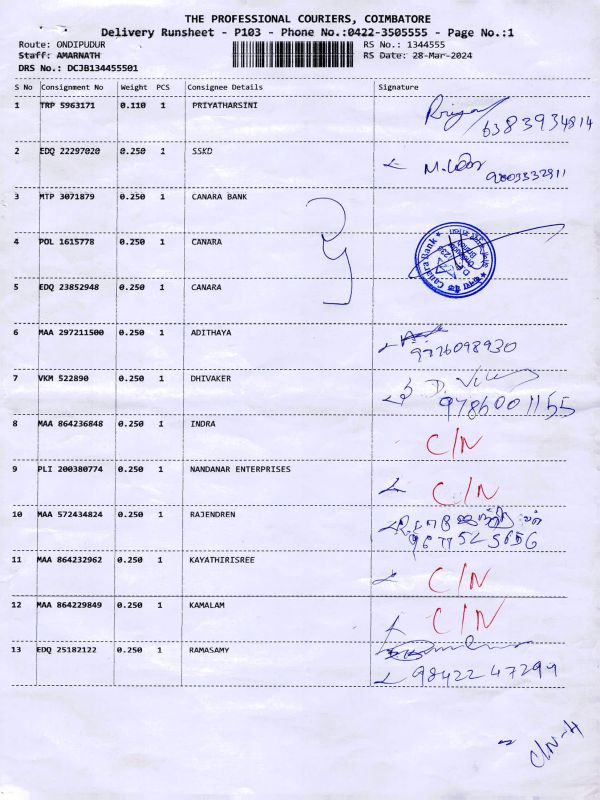 THE PROFESSIONAL COURIERS, COIMBATORE
Delivery Runsheet - P103 - Phone No.:0422-3505555 - Page No.:1
Route: ONDIPUDUR RS No.: 1344555
Staff: AMARNATH RS Date: 28-Mar-2024
DRS No.: DCJB134455501
S No Consignment No Weight PCS Consignee Details Signature
1 TRP 5963171 0.110 1 PRIYATHARSINI Priya
6383934814
2 EDQ 22297020 0.250 1 SSKD
3 MTP 3071879 0.250 1 CANARA BANK
4 POL 1615778 0.250 1 CANARA Canara Bank
5 EDQ 23852948 0.250 1 CANARA
6 MAA 297211500 0.250 1 ADITHAYA
9776098930
7 VKM 522890 0.250 1 DHIVAKER
9786001155
8 MAA 864236848 0.250 1 INDRA C/N
9 PLI 200380774 0.250 1 NANDANAR ENTERPRISES C/N
10 MAA 572434824 0.250 1 RAJENDREN
9677525656
11 MAA 864232962 0.250 1 KAYATHIRISREE C/N
12 MAA 864229849 0.250 1 KAMALAM C/N
13 EDQ 25182122 0.250 1 RAMASAMY
9842247299
C/N-4